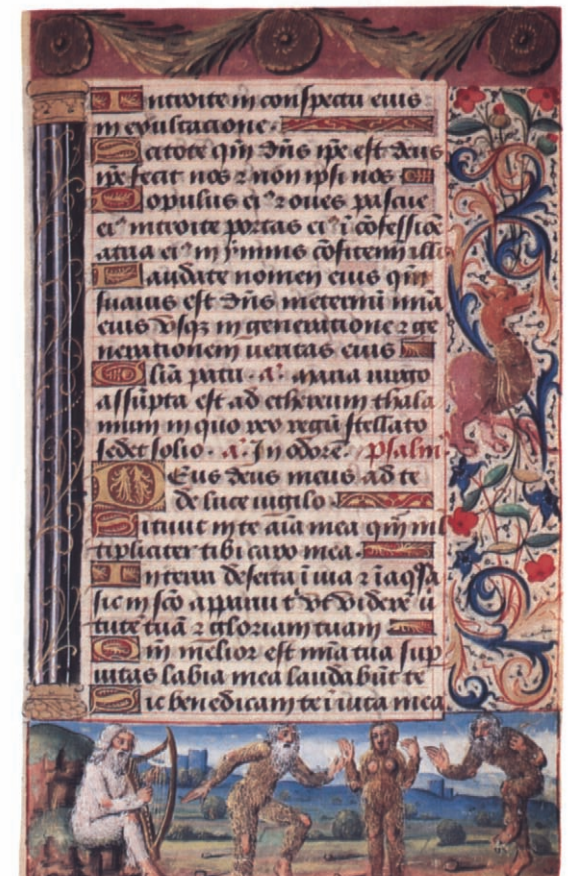 Introite in conspectu eius
in exultatione.
Scitote qm̄ dn̄s ip̄e est deus
ip̄e fecit nos ⁊ non ipsi nos
Populus eiꝰ ⁊ oues pascue
eiꝰ introite portas eiꝰ ī cōfessiōe
atria eiꝰ in ymnis cōfitemī illi
Laudate nomen eius qm̄
suauis est dn̄s in eternū mīa
eius vsqꝫ in generatione ⁊ ge
nerationem ueritas eius
Glīa patri. a᷒. Maria uirgo
assūpta est ad ethereum thala
mum in quo rex regū stellato
sedet solio. a᷒. In odorē. psalm
Deus deus meus ad te
de luce uigilo
Sitiuit in te aīa mea qm̄ ml
tipliciter tibi caro mea.
In terra deserta ī uia ⁊ īaqsa
sic in sc̄o apparui t̄ vt viderē ū
tutē tuā ⁊ gloriam tuam
Qm̄ melior est mīa tua sup
uitas labia mea laudabūt te
Sic benedicam te ī uita mea